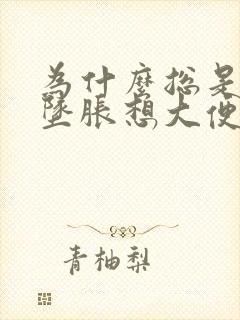 为什麽总是
坠胀想大便
青柚梨